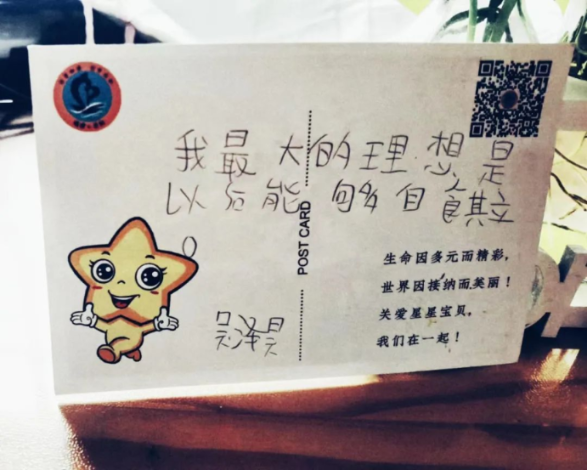 我最大的理想是
以后能够自食其立
。
吴泽昊
POST CARD
生命因多元而精彩,
世界因接纳而美丽！
关爱星星宝贝,
我们在一起！